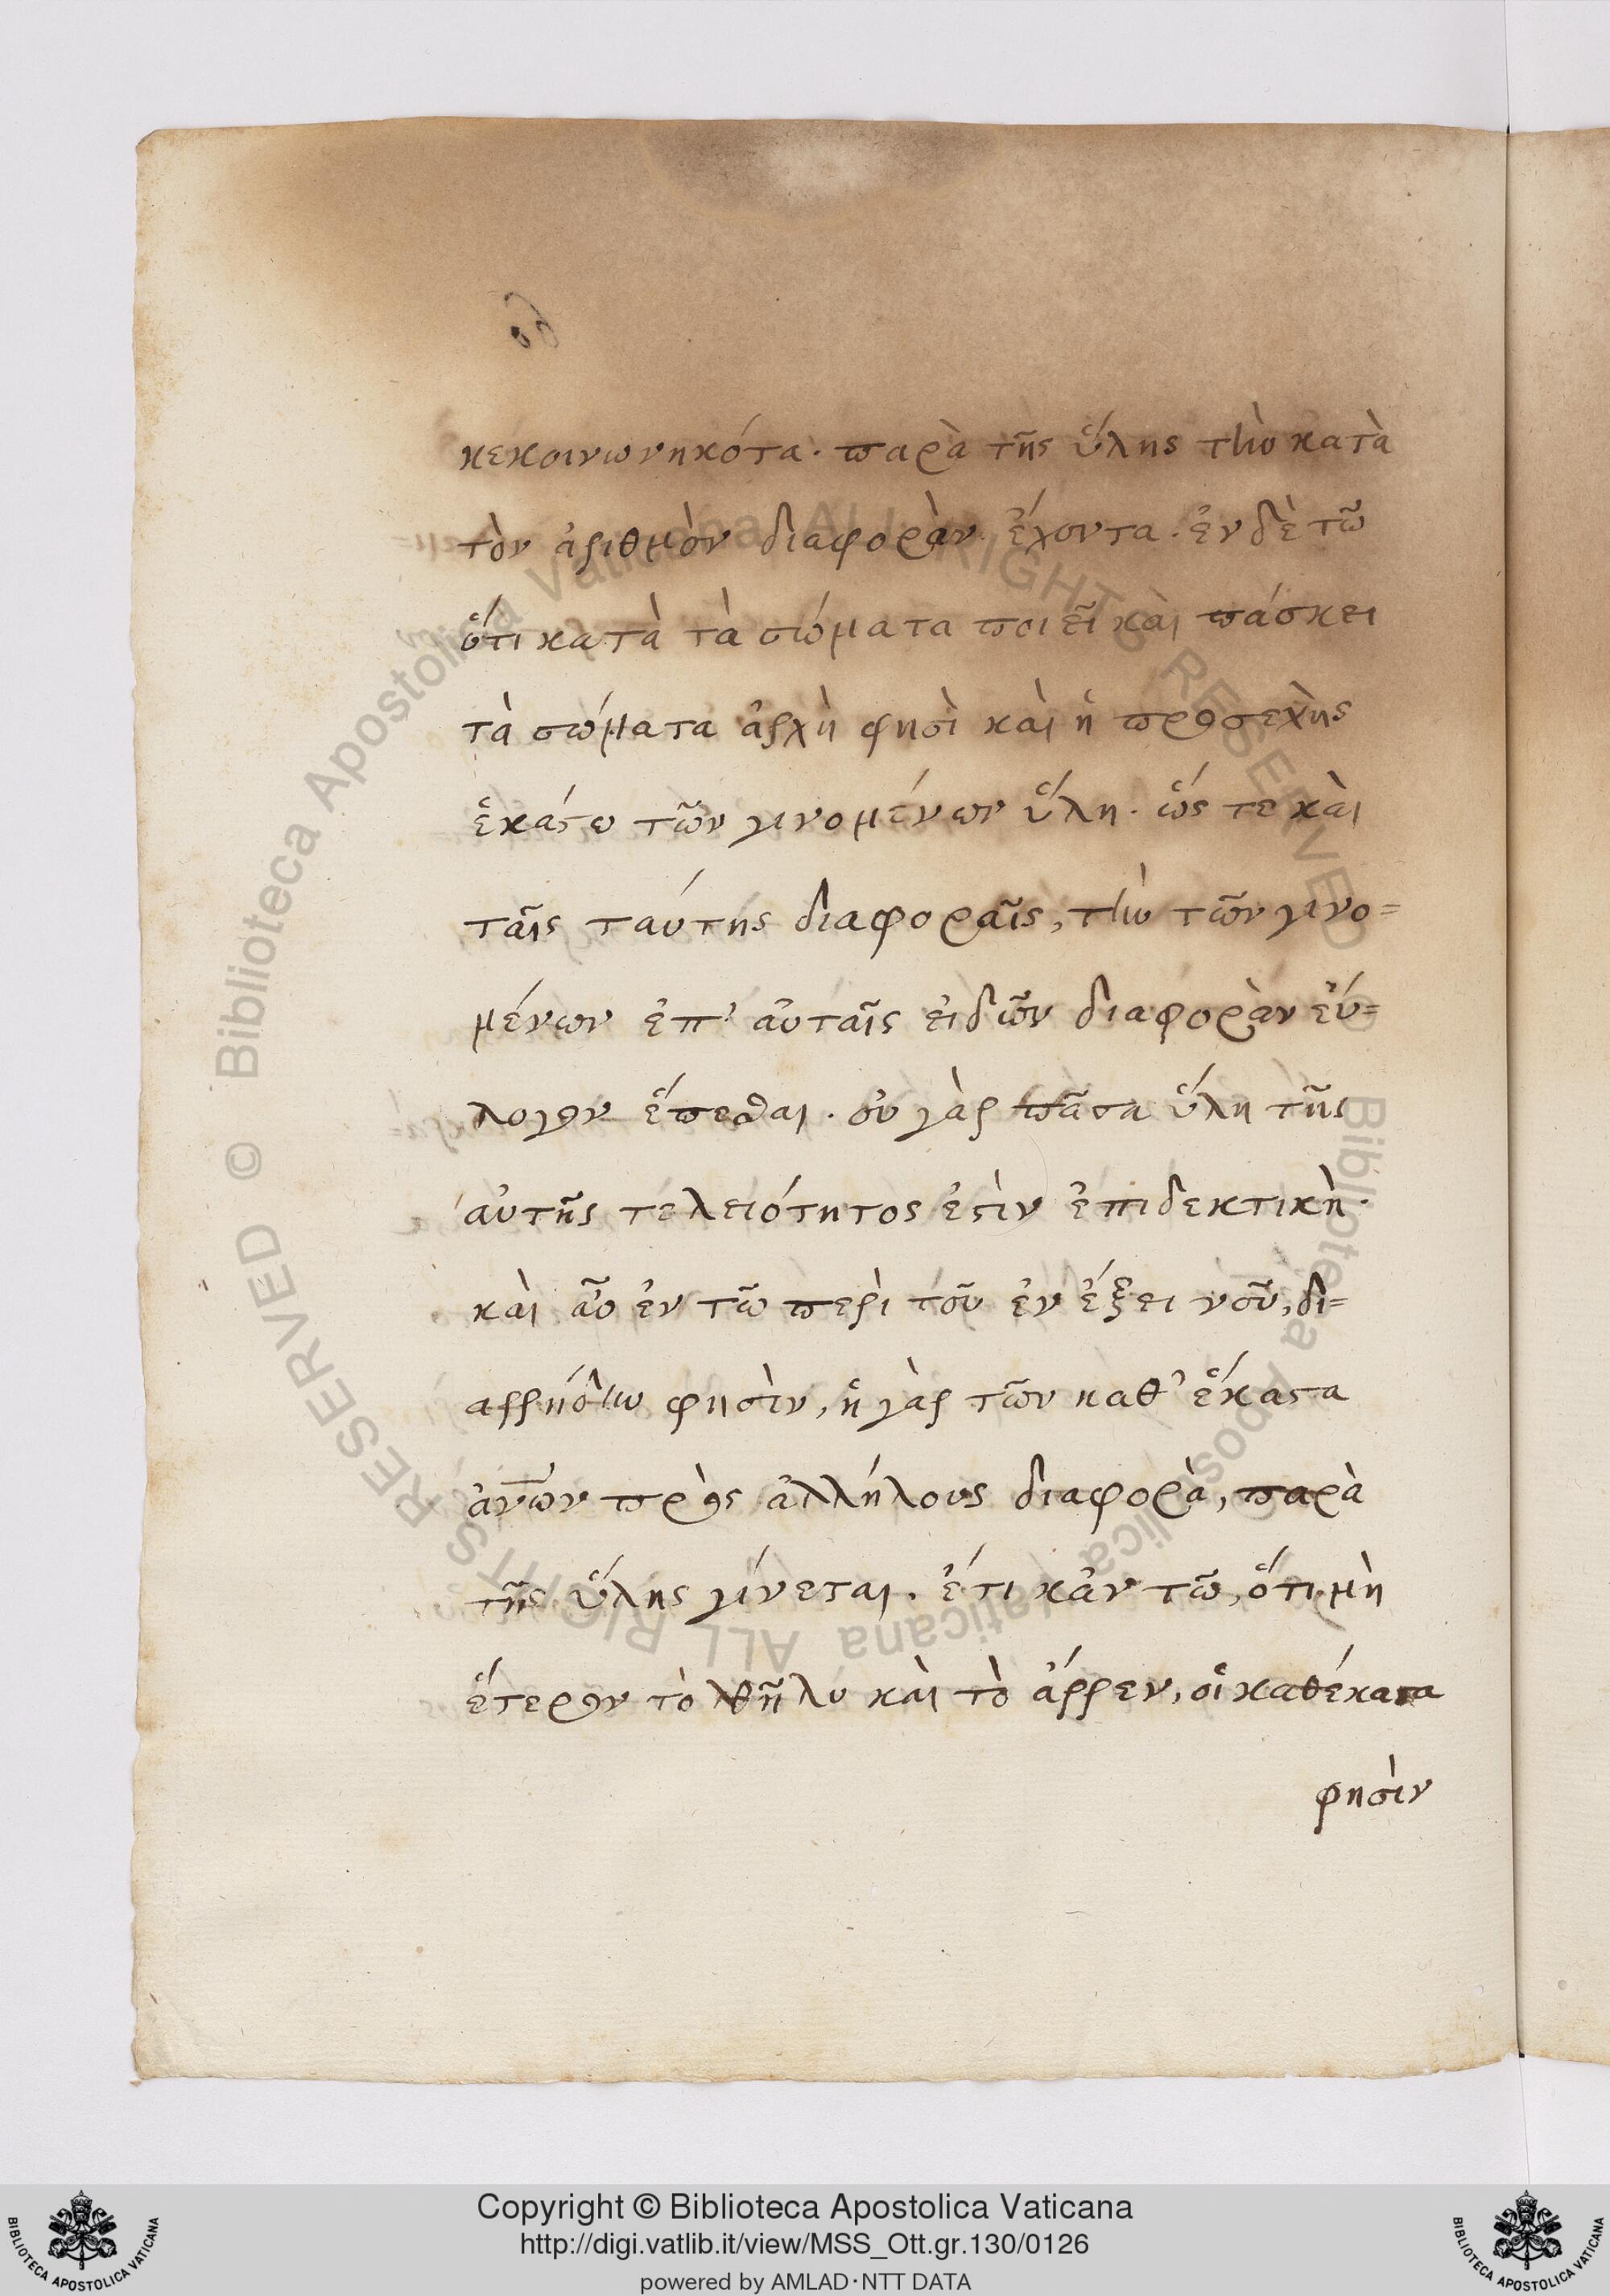 κεκοινωνηκότα. παρὰ τῆς ὕλης τὴν κατὰ
τὸν ἀριθμὸν διαφορὰν ἔχοντα. ἐν δὲ τῶ
ὅτι κατὰ τὰ σώματα ποιεῖ καὶ πάσχει
τὰ σώματα ἀρχὴ φησὶ καὶ ἡ προσεχὴς
ἑκάστω τῶν γινομένων ὕλη. ὥς τε καὶ
ταῖς ταύτης διαφοραῖς, τὴν τῶν γινο=
μένων ἐπ' αὐταῖς εἰδῶν διαφορὰν εὔ=
λογον ἕπεσθαι. οὐ γὰρ πᾶσα ὕλη τῆς
αὐτῆς τελειότητος ἐστὶν ἐπιδεκτικὴ.
καὶ αὖ ἐν τῶ περὶ τοῦ ἐν ἕξει νοῦ, δι=
αρρήδην φησὶν, ἡ γὰρ τῶν καθ' ἕκαστα
ἀνων πρὸς ἀλλήλους διαφορὰ, παρὰ
τῆς ὕλης γίνεται. ἔτι κἀν τῶ, ὅτι μὴ
ἕτερον τὸ θῆλυ καὶ τὸ ἄρρεν, οἱ καθέκαστα
φησὶν
Copyright © Biblioteca Apostolica Vaticana
http://digi.vatlib.it/view/MSS_Ott.gr.130/0126
powered by AMLAD·NTT DATA
© Biblioteca Apostolica Vaticana ALL RIGHTS RESERVED
© Biblioteca Apostolica Vaticana ALL RIGHTS RESERVED
BIBLIOTECA APOSTOLICA VATICANA
BIBLIOTECA APOSTOLICA VATICANA